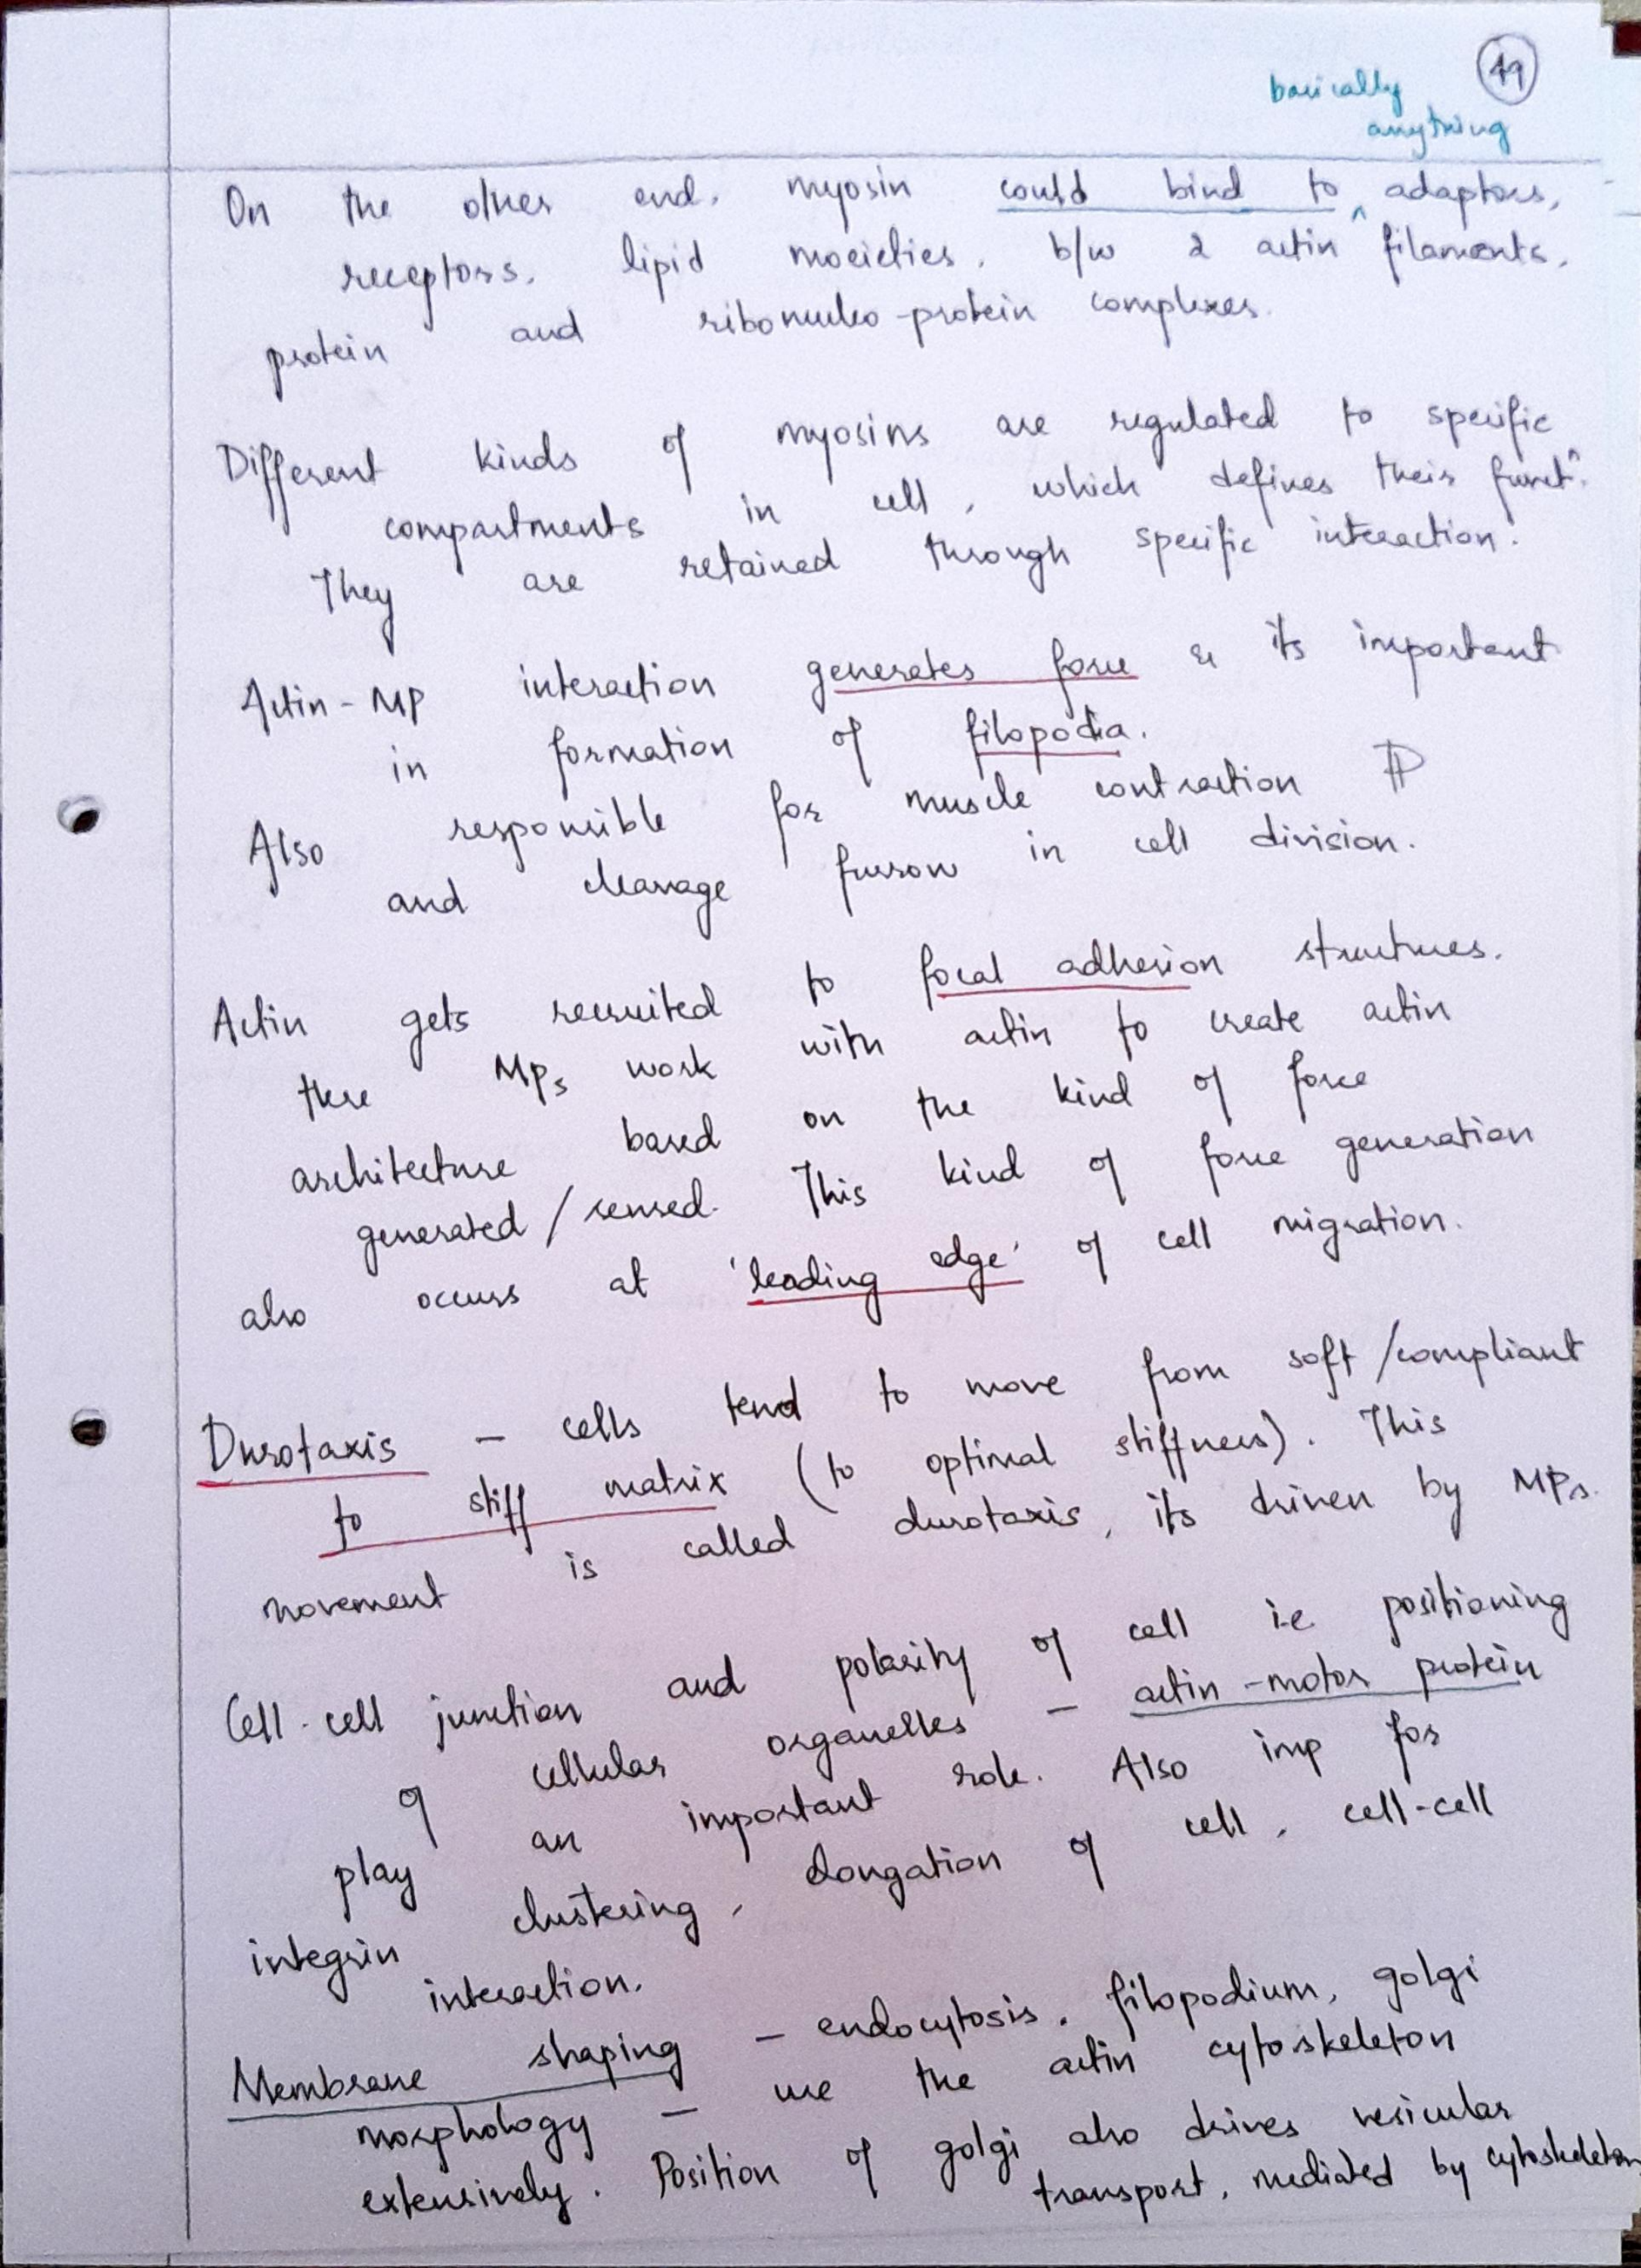 49
basically
anything
On the other end, myosin could bind to ^ adaptors,
receptors, lipid moeieties, b/w 2 actin filaments,
protein and ribonucleo-protein complexes.
Different kinds of myosins are regulated to specific
compartments in cell, which defines their functⁿ.
They are retained through specific interaction.
Actin-MP interaction generates force & its important
in formation of filopodia.
Also responsible for muscle contraction
and cleavage furrow in cell division.
Actin gets recruited to focal adhesion structures.
these MPs work with actin to create actin
architecture based on the kind of force
generated/sensed. This kind of force generation
also occurs at 'leading edge' of cell migration.
Durotaxis - cells tend to move from soft/compliant
to stiff matrix (to optimal stiffness). This
movement is called durotaxis, its driven by MPs.
Cell-cell junction and polarity of cell i.e positioning
of cellular organelles - actin-motor protein
play an important role. Also imp for
integrin clustering, elongation of cell, cell-cell
interaction.
Membrane shaping - endocytosis, filopodium, golgi
morphology - use the actin cytoskeleton
extensively. Position of golgi also drives vesicular
transport, mediated by cytoskeleton